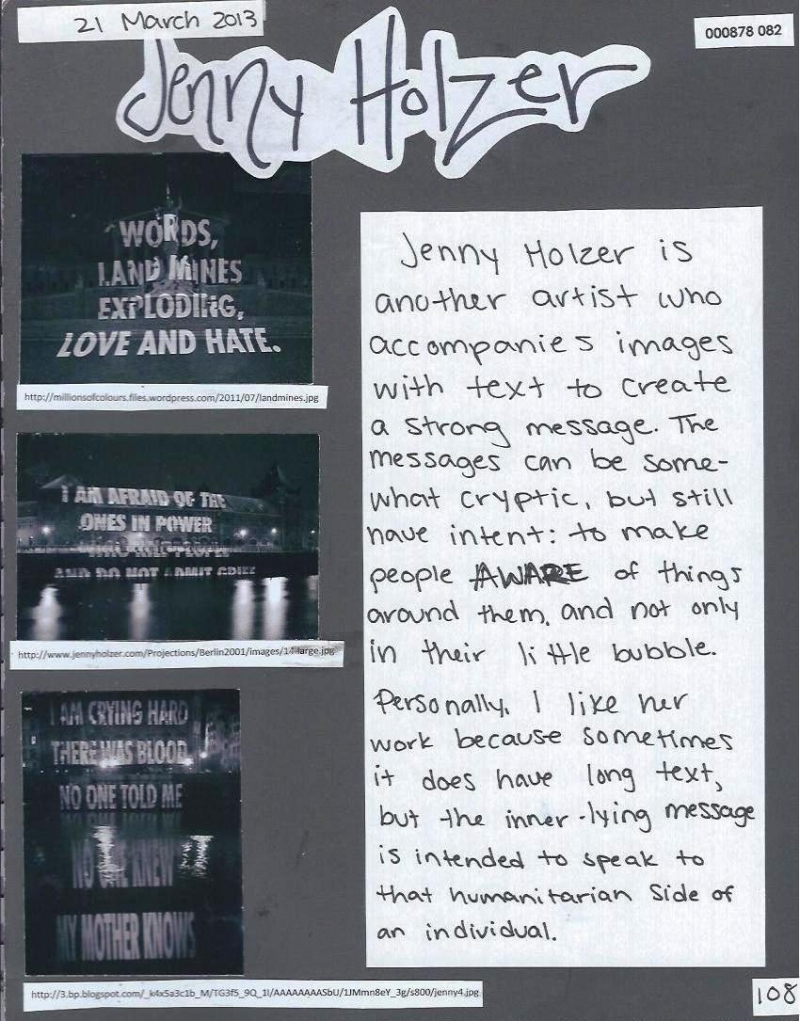 21 March 2013
000878 082
Jenny Holzer
WORDS,
LAND MINES
EXPLODING,
LOVE AND HATE.
http://millionsofcolours.files.wordpress.com/2011/07/landmines.jpg
I AM AFRAID OF THE
ONES IN POWER
WHO KILL PEOPLE
AND DO NOT ADMIT GRIEF
http://www.jennyholzer.com/Projections/Berlin2001/images/14-large.jpg
I AM CRYING HARD
THERE WAS BLOOD
NO ONE TOLD ME
NO ONE KNEW
MY MOTHER KNOWS
http://3.bp.blogspot.com/_k4x5a3c1b_M/TG3f5_9Q_1I/AAAAAAAASbU/1JMmn8eY_3g/s800/jenny4.jpg
Jenny Holzer is
another artist who
accompanies images
with text to create
a strong message. The
messages can be some-
what cryptic, but still
have intent: to make
people AWARE of things
around them, and not only
in their little bubble.
Personally, I like her
work because sometimes
it does have long text,
but the inner-lying message
is intended to speak to
that humanitarian side of
an individual.
108